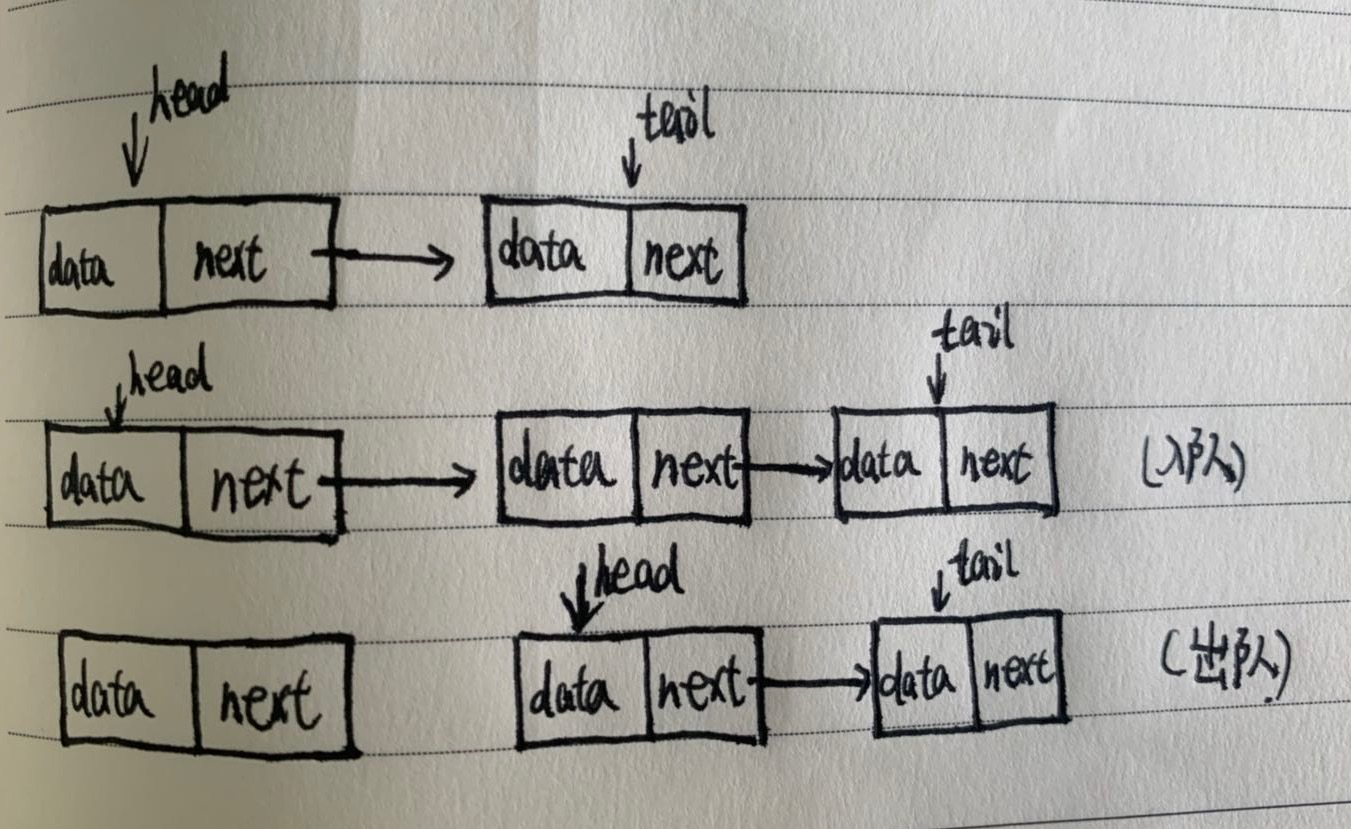 head tail
data next data next
head tail
data next data next data next (入队)
head tail
data next data next data next (出队)